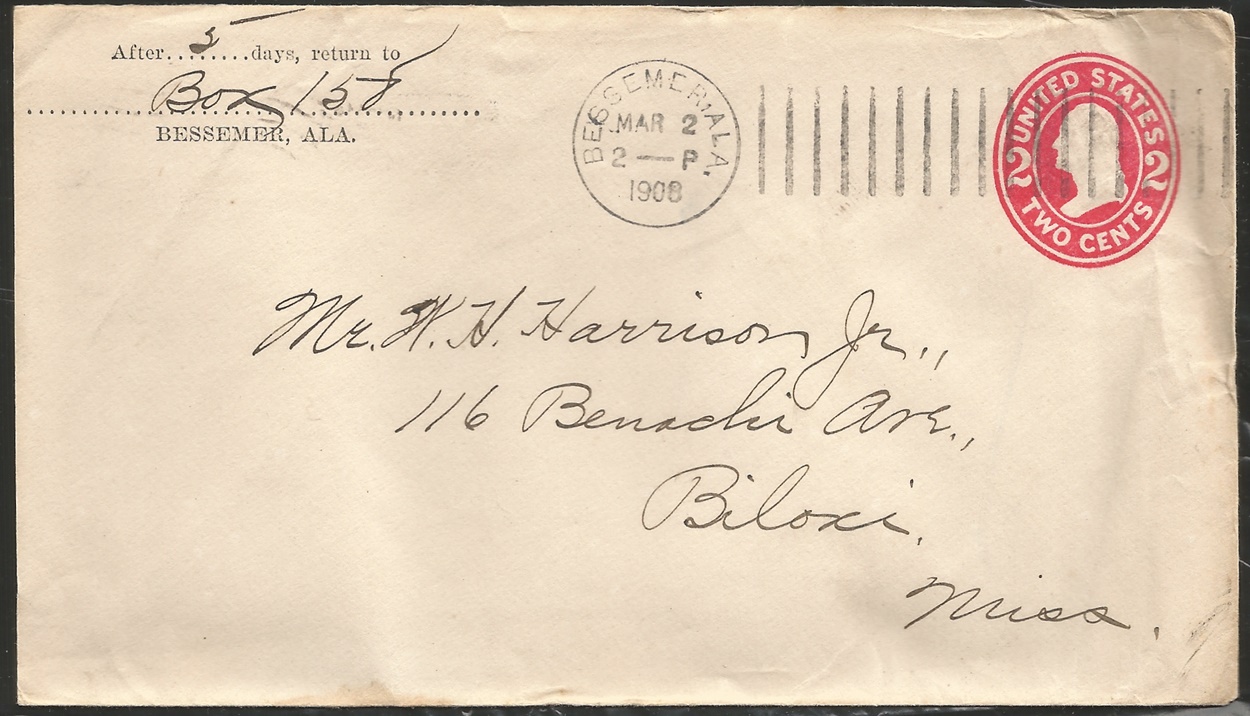 After..5......days, return to
Box 158
BESSEMER, ALA.
BESSEMER, ALA.
MAR 2
2 — P.
1908
UNITED STATES
2 2
TWO CENTS
Mr. W. H. Harrison Jr.,
116 Benachi Ave.,
Biloxi,
Miss.